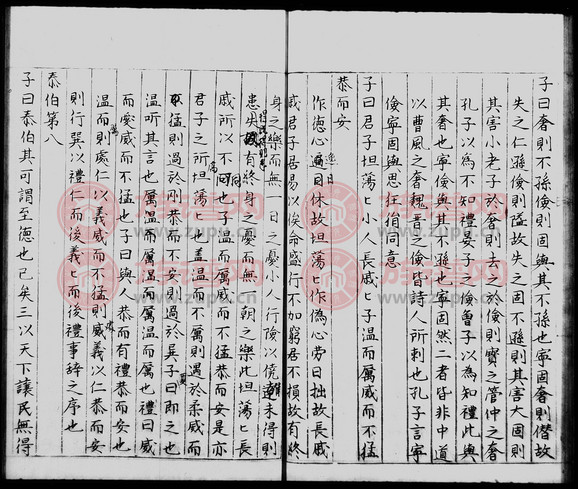 子曰奢則不孫儉則固與其不孫也寧固奢則僭故
失之不孫儉則隘故失之固不孫則其害大固則
其害小老子於奢則去之於儉則寶之管仲之奢
孔子以為不知禮晏子之儉曾子以為知禮此與
其奢也寧儉與其不孫也寧固然二者皆非中道
以曹風之奢魏晉之儉皆詩人所刺也孔子言寧
儉寧固與思狂狷同意
子曰君子坦蕩〻小人長戚〻子溫而厲威而不猛
恭而安
作德心逸日休故坦蕩〻作偽心勞日拙故長戚
戚君子居易以俟命盛行不加窮居不損故有終
身之樂而無一日之憂小人行險以僥未得則
患失有終身之憂而無一朝之樂此坦蕩〻長
戚所以不同也子溫而厲威而不猛恭而安是亦
君子之所坦蕩〻也蓋溫而不厲則過於柔威而
不猛則過於剛恭而不安則過於巽子曰即之也
溫聽其言也厲溫而厲也禮曰威
而愛威而不猛也子曰與人恭而有禮恭而安也
溫而厲則處仁以義威而不猛則威義以仁恭而安
則行巽以禮仁而後義〻而後禮事辭之序也
泰伯第八
子曰泰伯其可謂至德也已矣三以天下讓民無得